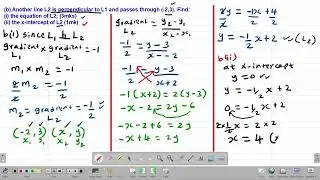 (b) Another line L2 is perpendicular to L1 and passes through (-2,3). Find:
(i) the equation of L2; (3mks)
(ii) the x-intercept of L2 (1mk)
b(i) Since L1 ⊥ L2
gradient × gradient = -1
m1 × m2 = -1
m2 = gradient = -1/2
(-2, 3) (x, y)
x1 y1 x2 y2
gradient = y2 - y1
x2 - x1
-1/2 = y - 3
x - -2
-1/2 = y - 3
x + 2
-1(x + 2) = 2(y - 3)
-x - 2 = 2y - 6
-x - 2 + 6 = 2y
-x + 4 = 2y
2y = -1x + 4
2 2
y = -1/2 x + 2 ✓ (L2)
b(ii)
at x-intercept
y = 0
y = -1/2 x + 2
0 = -1/2 x + 2
2 × 1/2 x = 2 × 2
x = 4 (